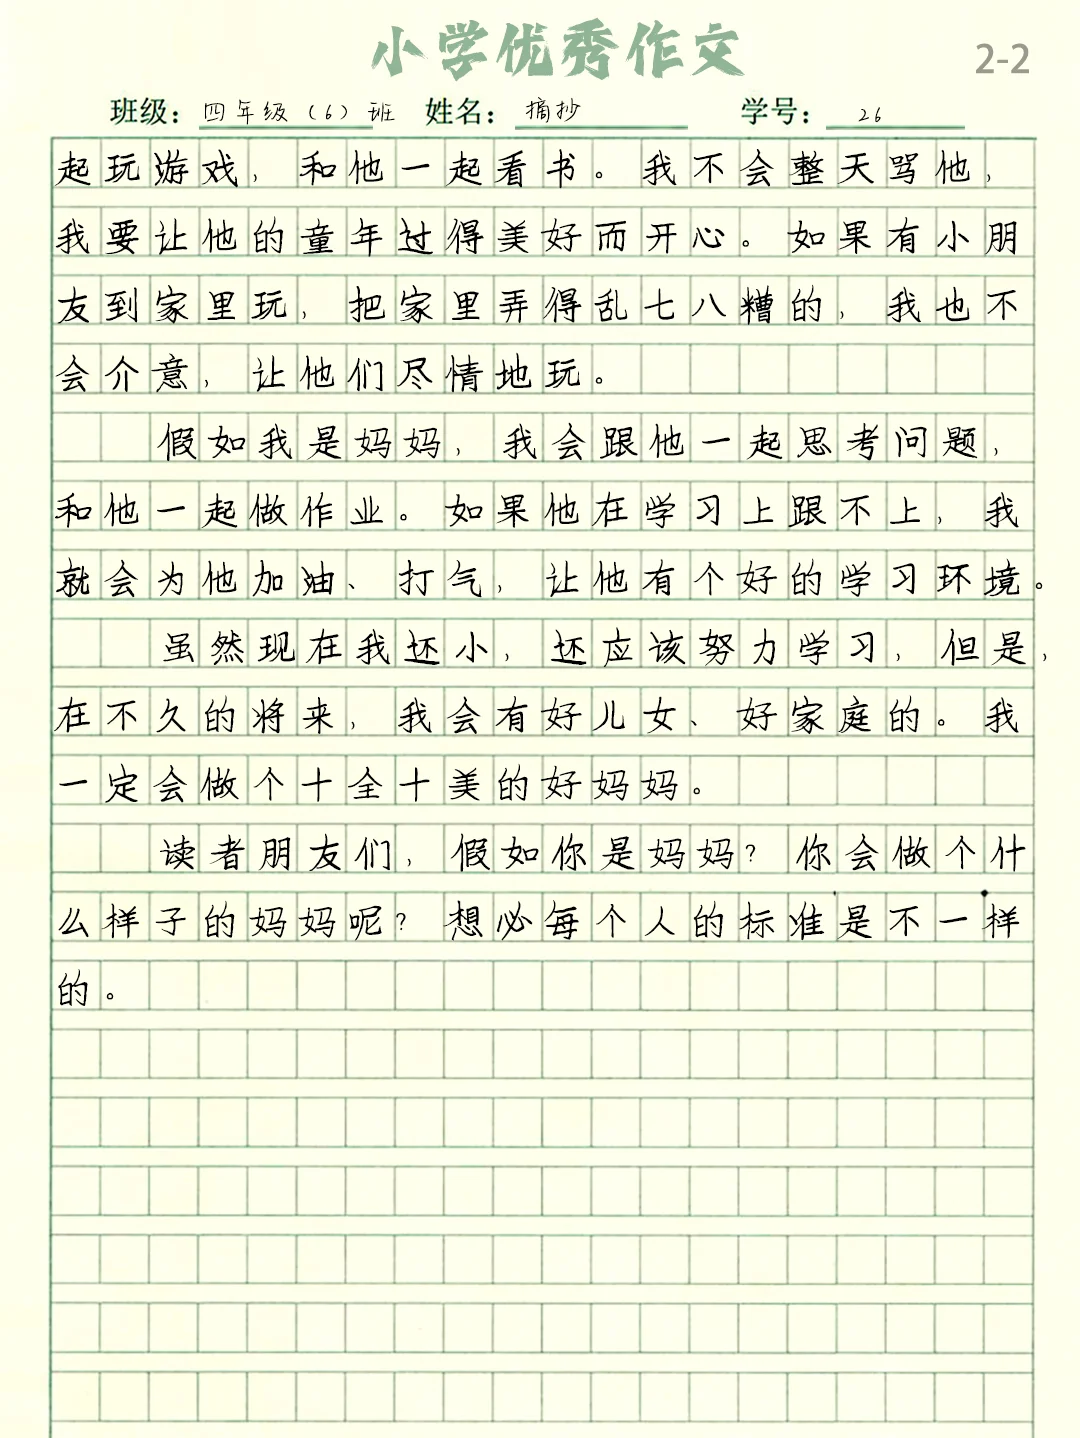 小学优秀作文
2-2
班级：四年级（6）班 姓名：摘抄 学号：26
起玩游戏，和他一起看书。我不会整天骂他，
我要让他的童年过得美好而开心。如果有小朋
友到家里玩，把家里弄得乱七八糟的，我也不
会介意，让他们尽情地玩。
假如我是妈妈，我会跟他一起思考问题，
和他一起做作业。如果他在学习上跟不上，我
就会为他加油、打气，让他有个好的学习环境。
虽然现在我还小，还应该努力学习，但是，
在不久的将来，我会有好儿女、好家庭的。我
一定会做个十全十美的好妈妈。
读者朋友们，假如你是妈妈？你会做个什
么样子的妈妈呢？想必每个人的标准是不一样
的。